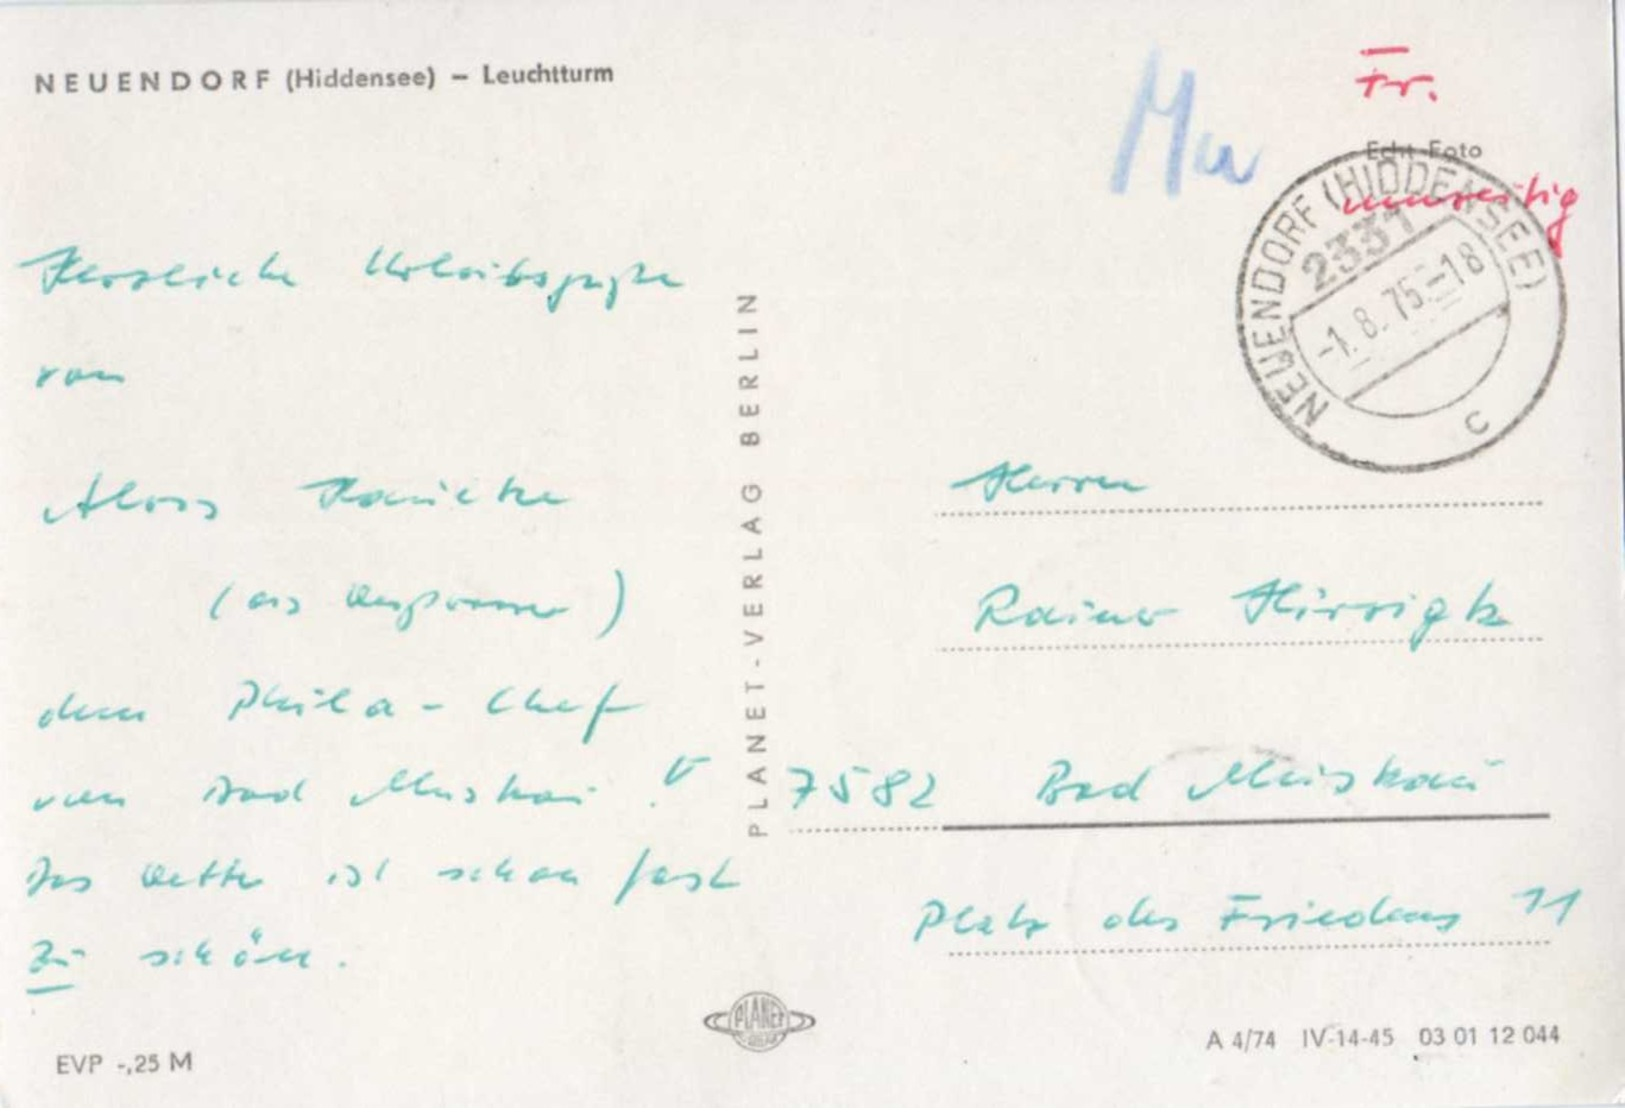 NEUENDORF (Hiddensee) – Leuchtturm
Fr.
Echt Foto
umseitig
NEUENDORF (HIDDENSEE)
2331
-1.8.75-18
c
Herzliche Urlaubsgrüße
von
Alois
(als
dem Phila-Chef
von Bad Muskau!
Das Wetter ist schon fast
zu schön.
PLANET-VERLAG BERLIN
Herrn
Rainer Hirrigk
7582 Bad Muskau
Platz des Friedens 11
PLANET
EVP -,25 M
A 4/74 IV-14-45 03 01 12 044